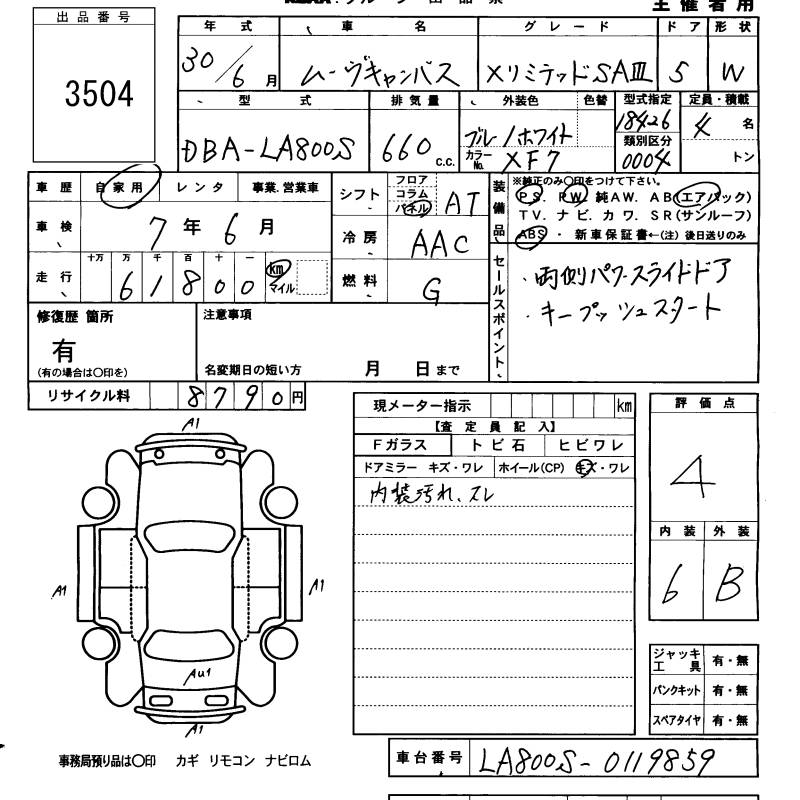 主催者用
出品番号
3504
年式 車名 グレード ドア 形状
30/6月 ムーヴキャンバス XリミテッドSAⅢ 5 W
型式 排気量 外装色 色替 型式指定 定員・積載
DBA-LA800S 660 C.C. ブルー/ホワイト 18426 4名
カラーNo. XF7 類別区分 0004 トン
車歴 自家用 レンタ 事業.営業車
車検 7年6月
走行 十万 万 千 百 十 一
61800 km マイル
シフト フロア コラム パネル AT
冷房 AAC
燃料 G
装備品 ※純正のみ〇印をつけて下さい。
PS. PW. 純AW. AB(エアバック)
TV. ナビ. カワ. SR(サンルーフ)
ABS・新車保証書←(注)後日送りのみ
セールスポイント
・両側パワースライドドア
・キープッシュスタート
修復歴 箇所
有
(有の場合は〇印を)
注意事項
名変期日の短い方 月 日まで
リサイクル料 8790円
現メーター指示 km
【査定員記入】
Fガラス トビ石 ヒビワレ
ドアミラー キズ・ワレ ホイール(CP) キズ・ワレ
内装汚れ、スレ
評価点
4
内装 外装
6 B
A1
A1
A1
Au1
A1
ジャッキ工具 有・無
パンクキット 有・無
スペアタイヤ 有・無
事務局預り品は〇印 カギ リモコン ナビロム
車台番号 LA800S-0119859